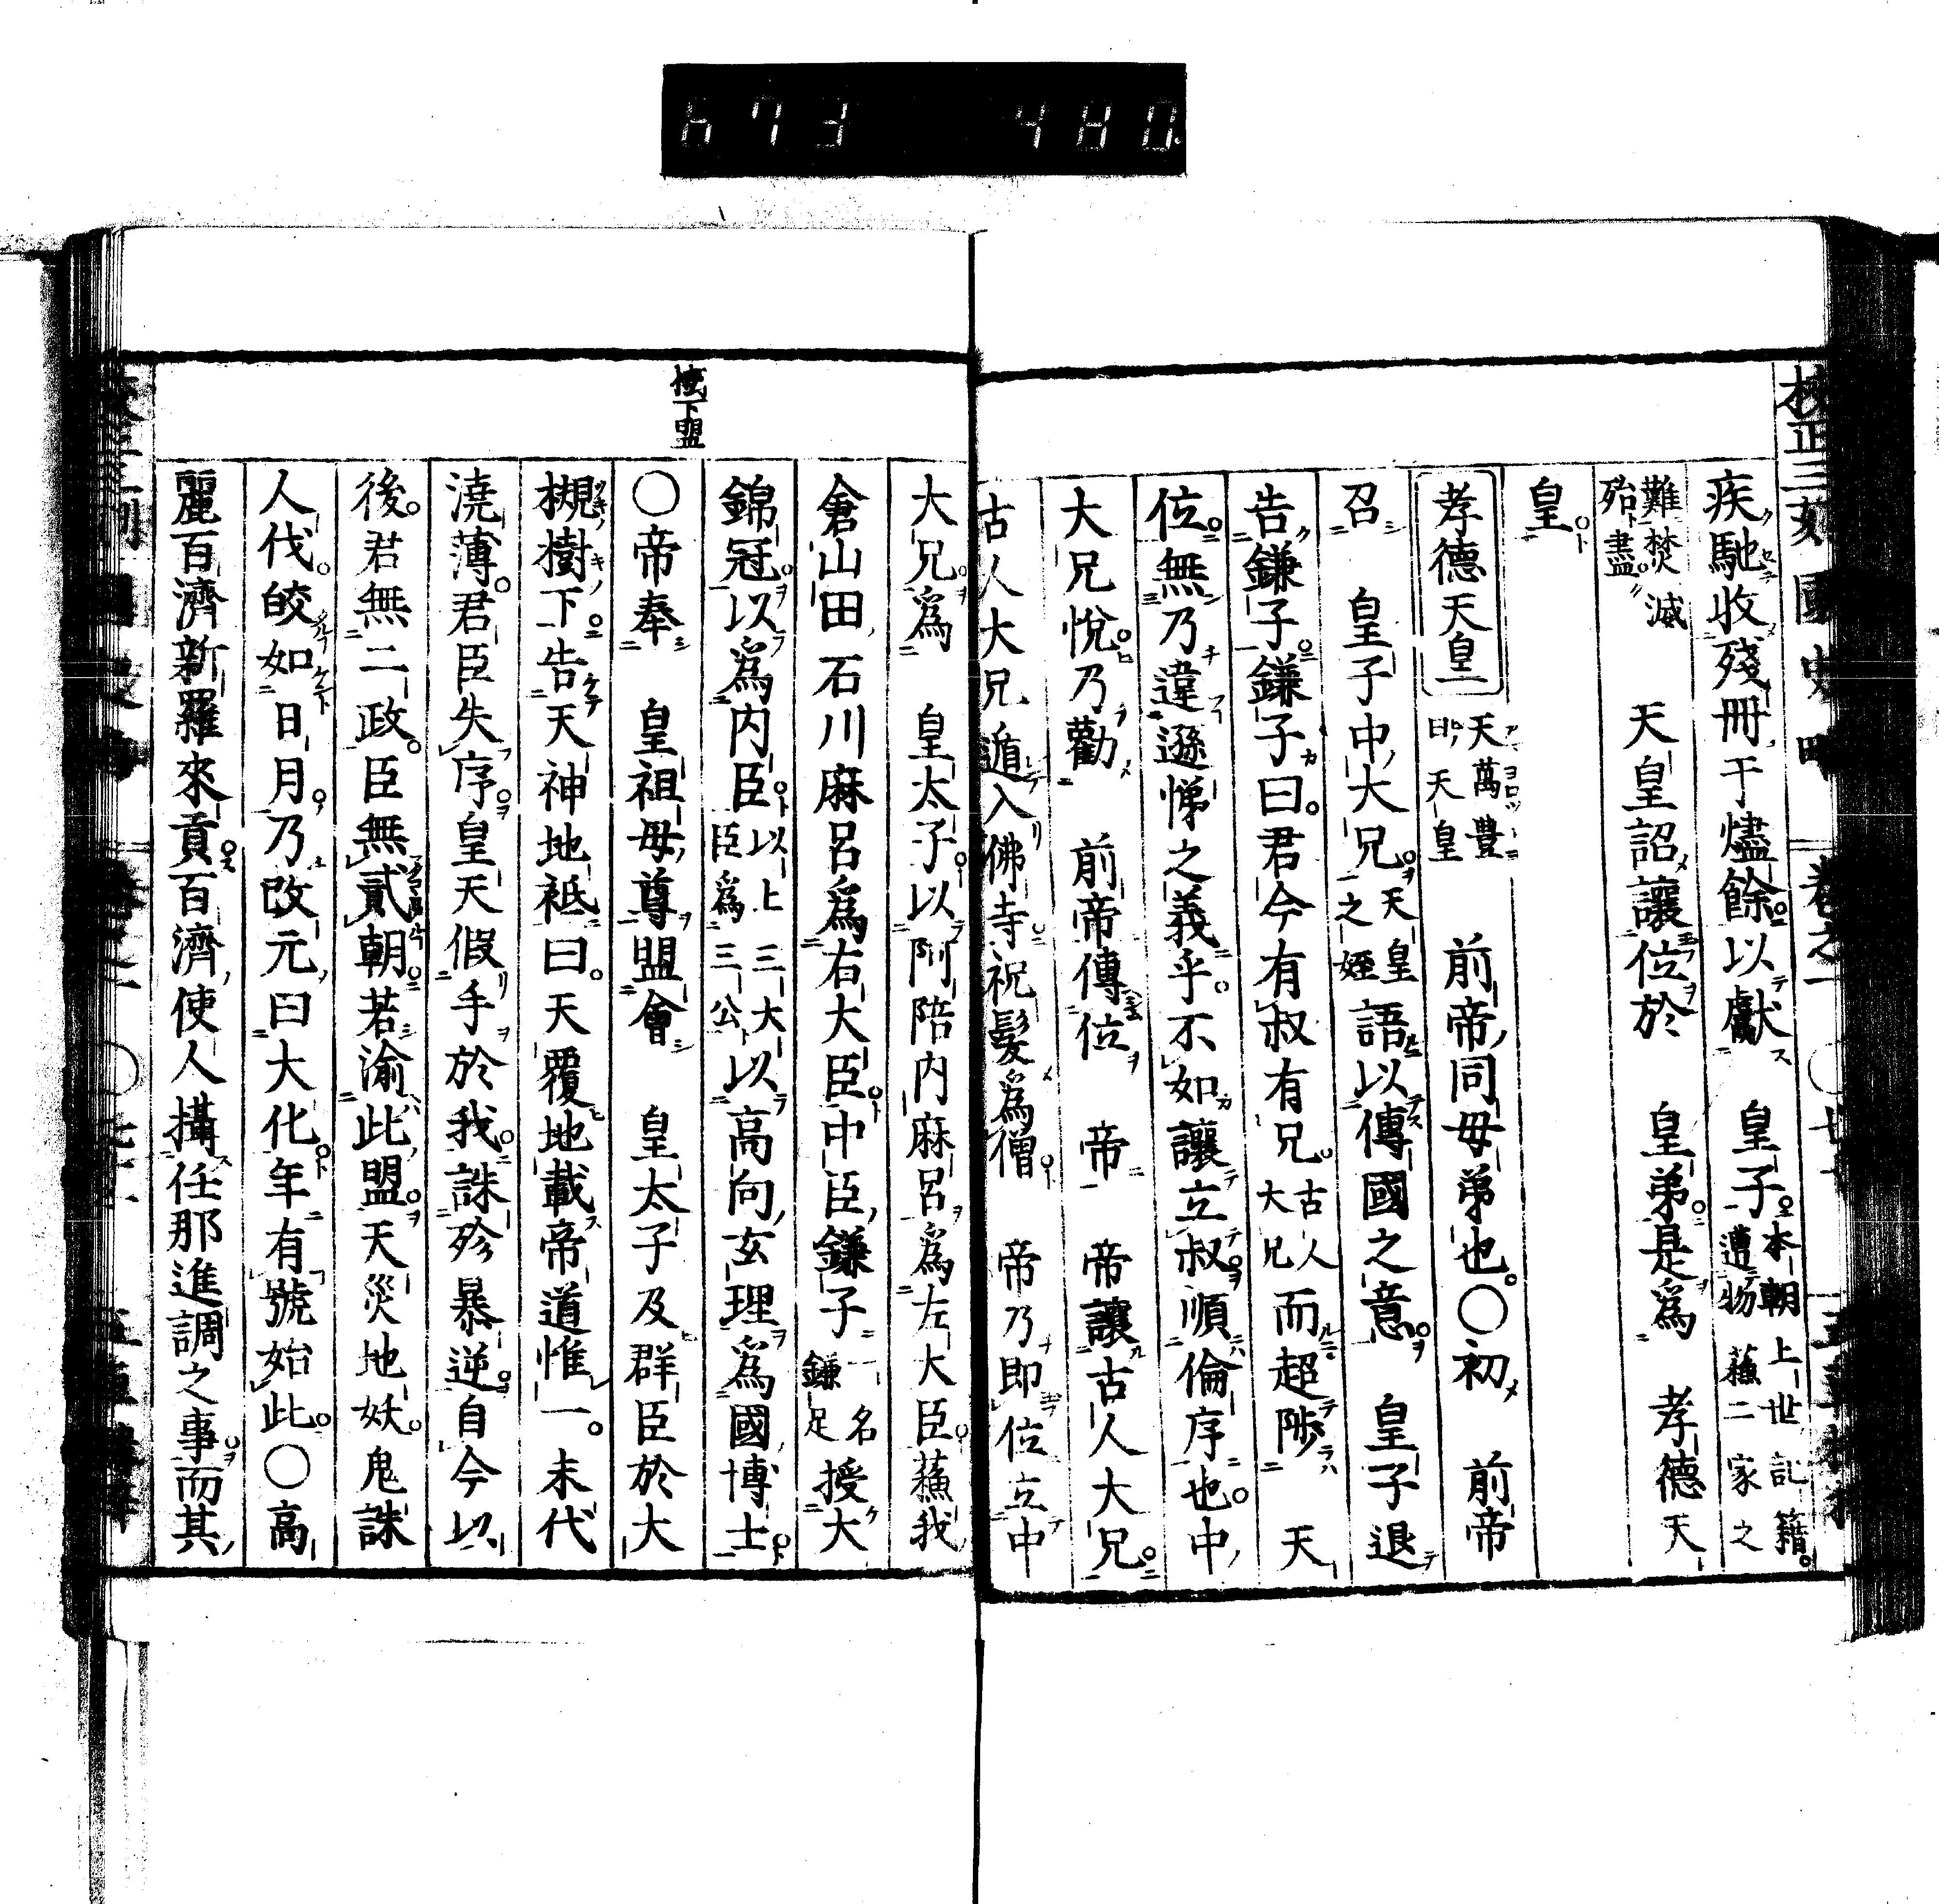 673 480
疾馳收殘冊于燼餘以獻 皇子本朝上世記籍遭物蘇二家之
難焚滅殆盡 天皇詔讓位於 皇弟是爲 孝德天
皇
孝德天皇 天萬豐日天皇 前帝同毋弟也○初 前帝
召 皇子中大兄天皇之姪語以傳國之意 皇子退
告鎌子鎌子曰君今有叔有兄古人大兄而超陟 天
位無乃違遜悌之義乎不如讓立叔順倫序也中
大兄悅乃勸 前帝傳位 帝 帝讓古人大兄
古人大兄遁入佛寺祝髮爲僧 帝乃即位立中
大兄爲 皇太子以阿陪内麻呂爲左大臣蘇我
倉山田石川麻呂爲右大臣中臣鎌子一名鎌足授大
錦冠以爲内臣以上三大臣爲三公以高向玄理爲國博士
按下盟
○帝奉 皇祖毋尊盟會 皇太子及群臣於大
槻樹下告天神地祗曰天覆地載帝道惟一末代
澆薄君臣失序皇天假手於我誅殄暴逆自今以
後君無二政臣無貳朝若渝此盟天災地妖鬼誅
人伐皎如日月乃改元曰大化年有號始此○高
麗百濟新羅來貢百濟使人攝任那進調之事而其